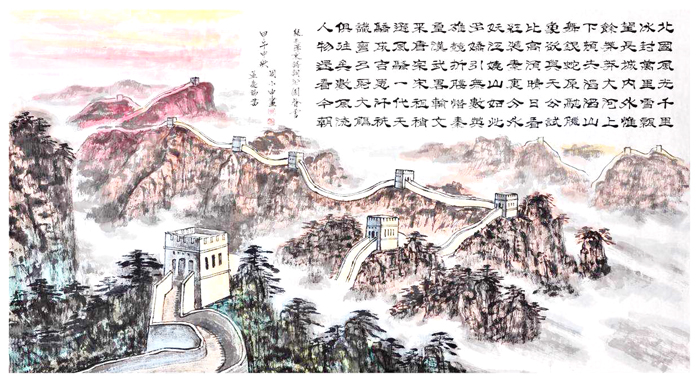 北國風光千里
冰封萬里雪飄
望長城內外惟
餘莽莽大河上
下頓失滔滔山
舞銀蛇原馳蠟
象欲與天公試
比高須晴日看
紅裝素裹分外
妖嬈江山如此
多嬌引無數英
雄競折腰惜秦
皇漢武略輸文
采唐宗宋祖稍
遜風騷一代天
驕成吉思汗只
識彎弓射大雕
俱往矣數風流
人物還看今朝
錄毛澤東詩詞沁園春雪
甲午中秋